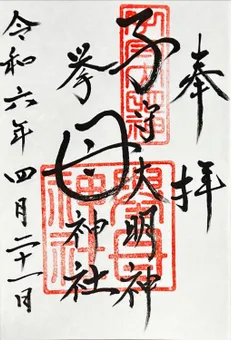 奉拝
子守大明神
挙母神社
令和六年四月二十一日